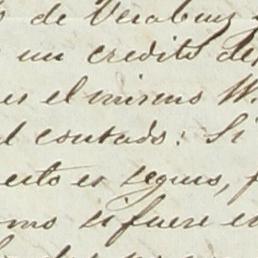 de Veracruz
un credito de
es el mismo W.
l contado: Si
esto es seguro, f
omo si fuere e